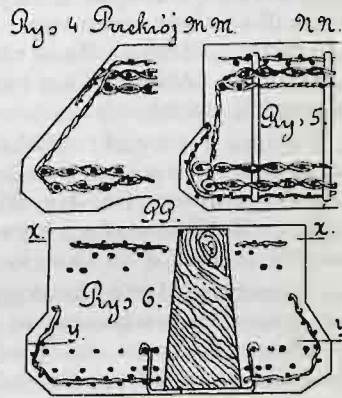 Rys 4 Przekrój M M. N N.
Rys 5.
P P.
x x.
Rys 6.
y y